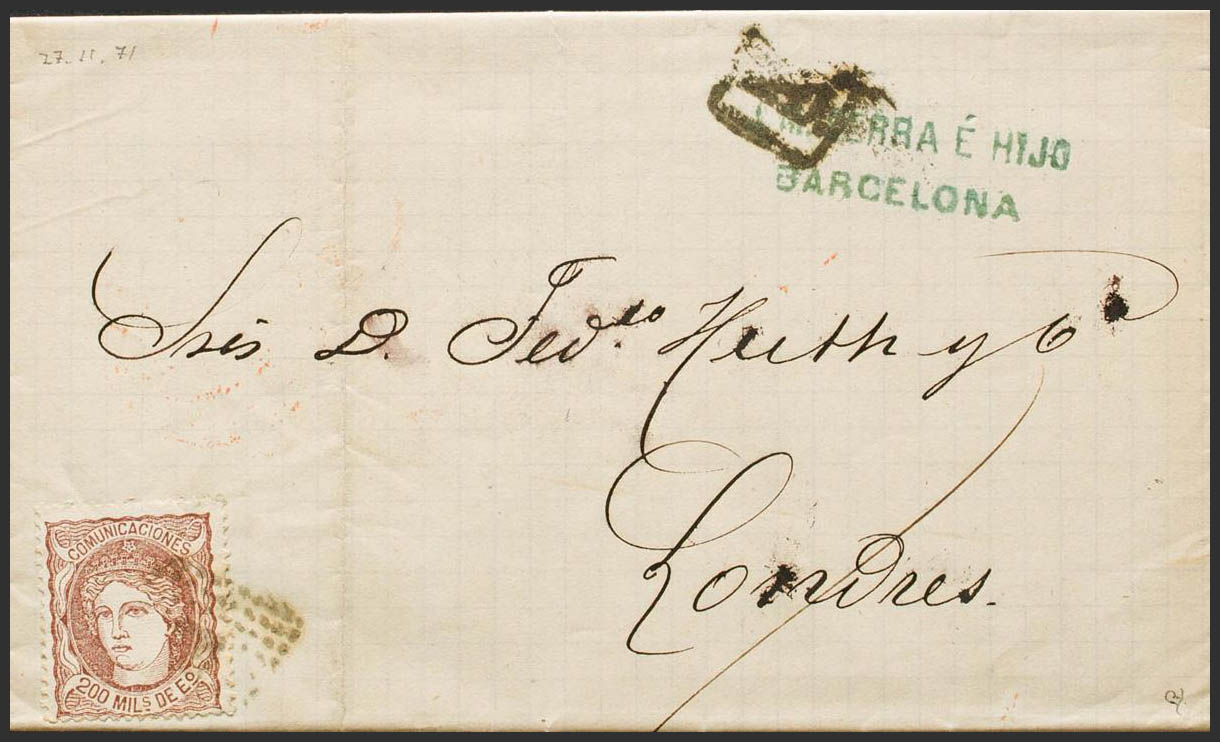 27. 11. 71
SERRA É HIJO
BARCELONA
Sres D. Fed.co Huth y Ca
Londres.
COMUNICACIONES
200 MILS DE Eo